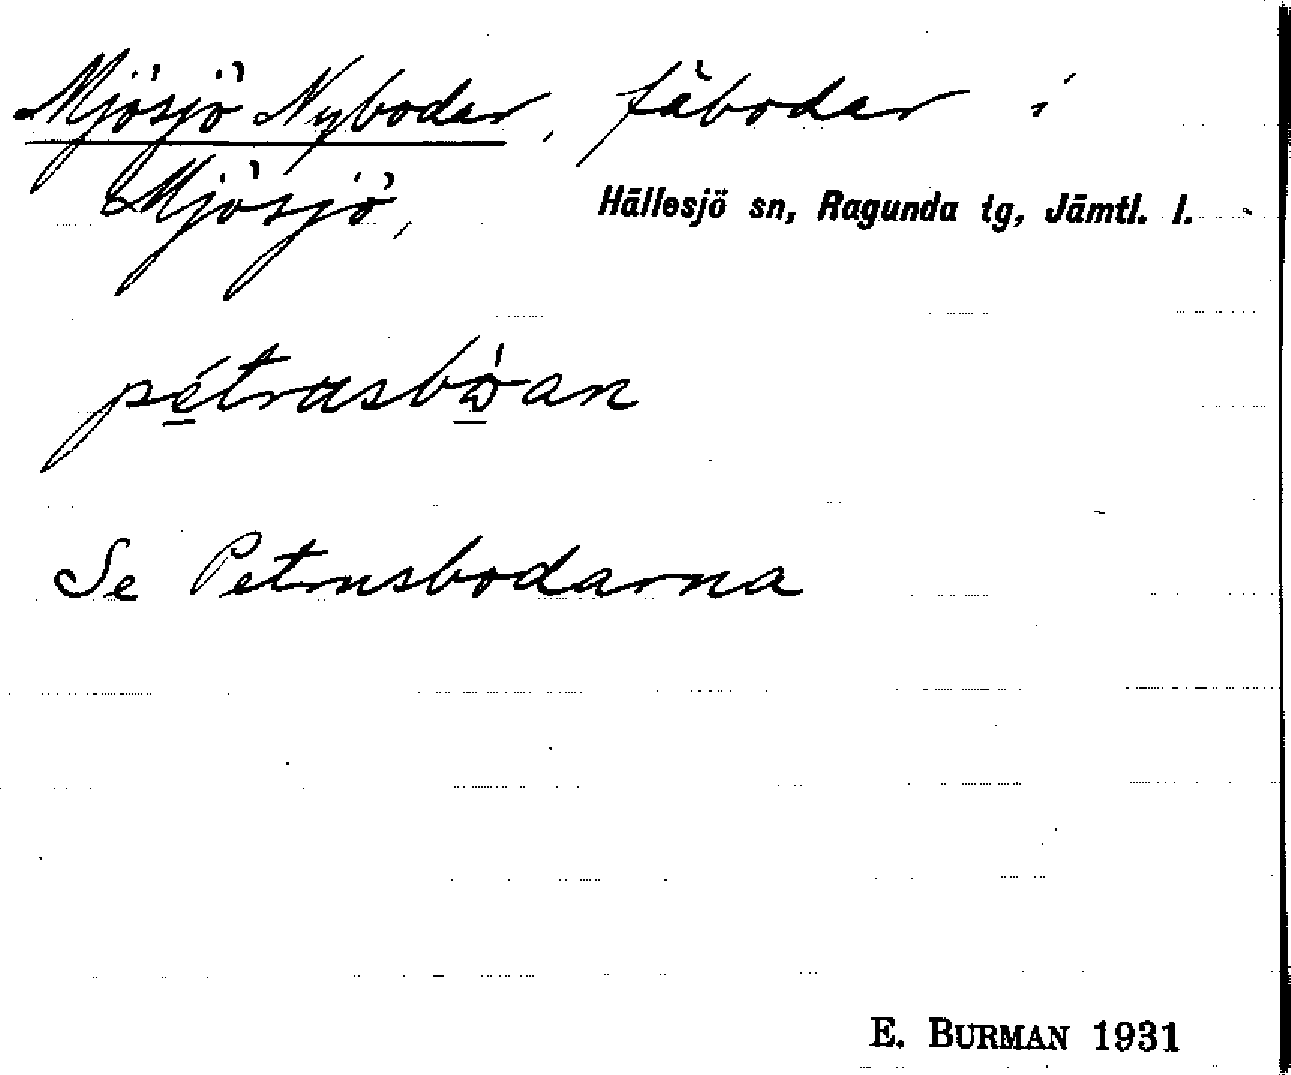 Mjösjö Nybodar, fäbodar i
Mjösjö, Hällesjö sn, Ragunda tg, Jämtl. l.
pétrusbòan
Se Petrusbodarna
E. BURMAN 1931